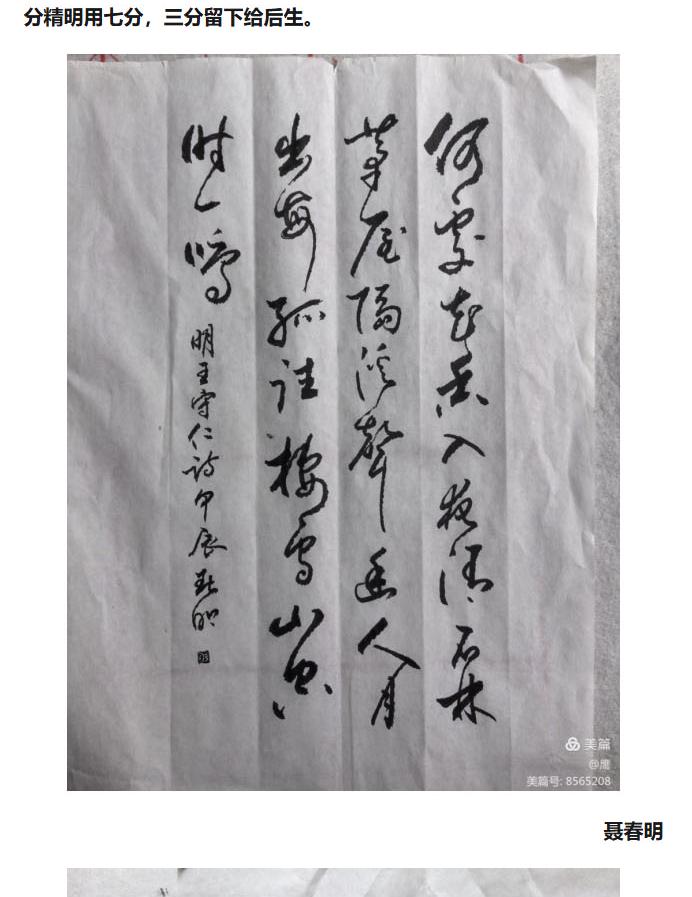 分精明用七分，三分留下给后生。
何處花香入夜清石林
茅屋隔溪聲幽人月
出每孤往棲鸟山空
时一鸣
明王守仁诗甲辰春明
美篇
@鹰
美篇号: 8565208
聂春明